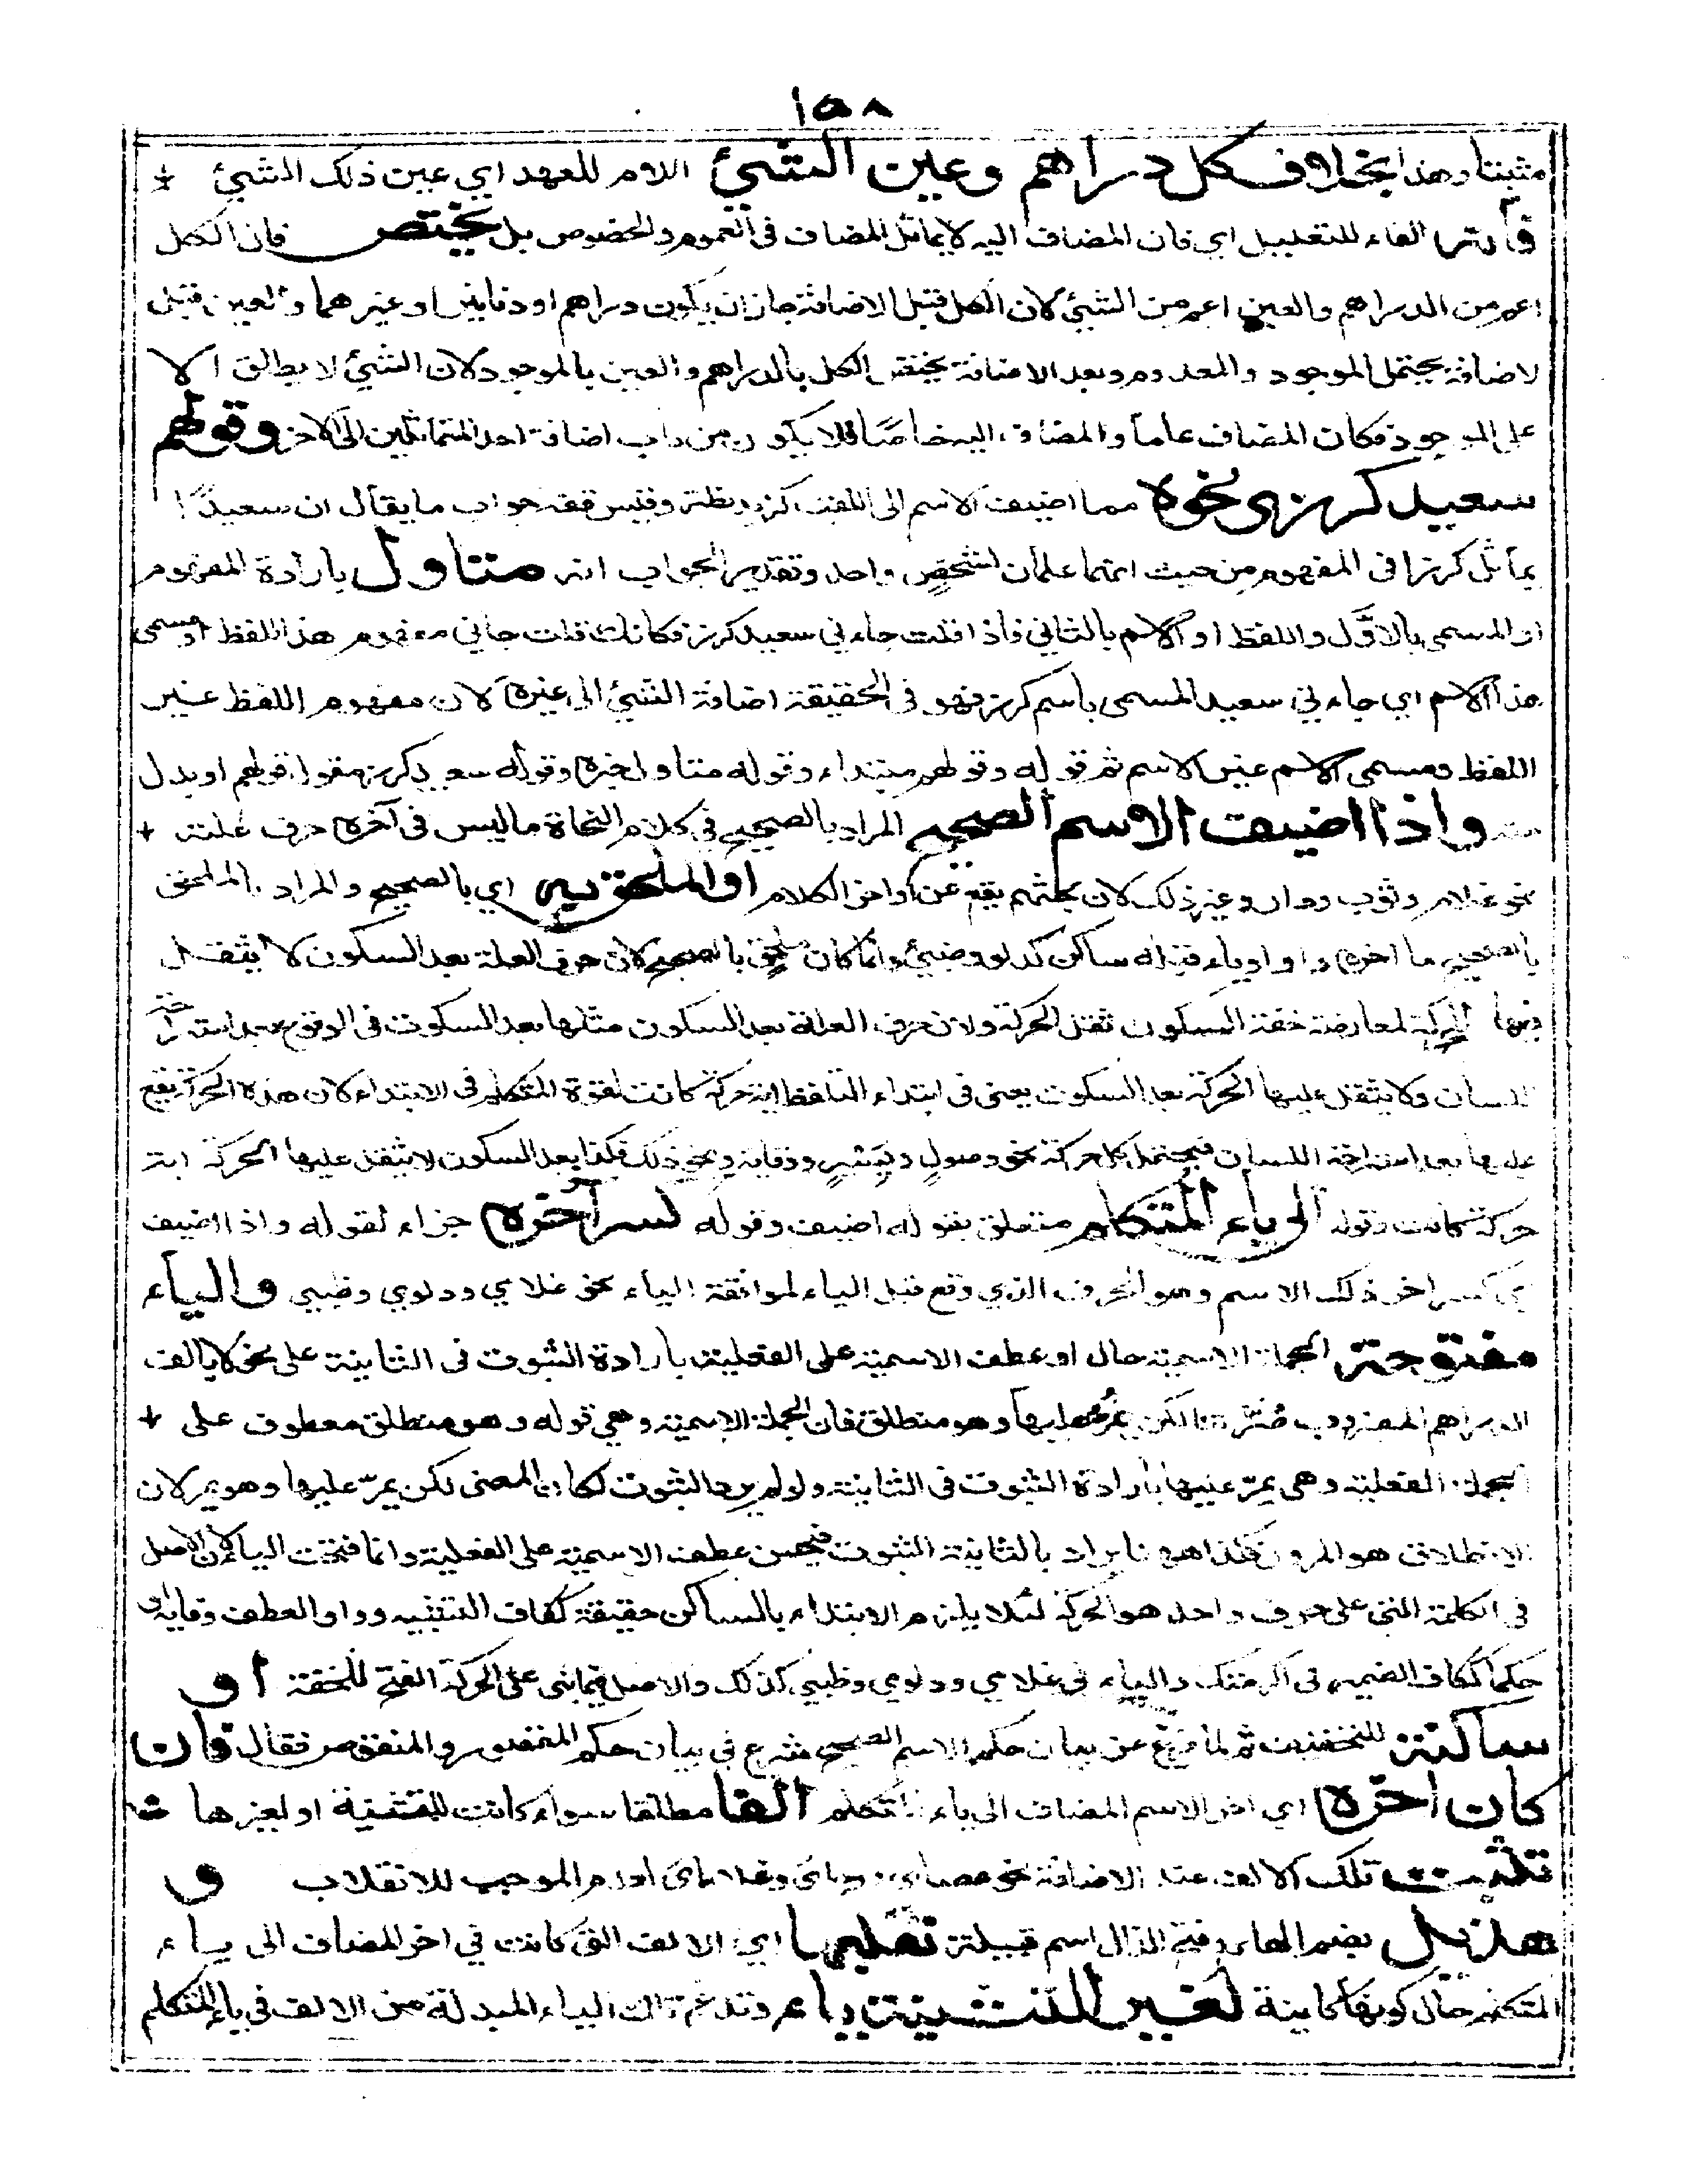 ١٥٨
مثبتا وهذا بخلاف كل دراهم وعين الشيئ اللام للعهد اي عين ذلك الشيئ
فانه الفاء للتعليل اي فان المضاف اليه لا يماثل المضاف في العموم والخصوص بل يختص فان الكل
اعم من الدراهم والعين اعم من الشيئ لان الكل قبل الاضافة جاز ان يكون دراهم او دنانير او غيرهما والعين قبل
لاضافة يحتمل الموجود والمعدوم وبعد الاضافة يختص الكل بالدراهم والعين بالموجود لان الشيئ لا يطلق الا
على الموجود فكان المضاف عاما والمضاف اليه خاصا فلا يكون من باب اضافة احد المتماثلين الى الاخر وقولهم
سعيد كرز ونحوه مما اضيف الاسم الى اللقب كزيد بطة وقيس قفة جواب ما يقال ان سعيدا
يماثل كرزا في المفهوم من حيث انهما علمان لشخص واحد وتقدير الجواب انه متاول بارادة المفهوم
او المسمى بالاول واللفظ او الاسم بالثاني فاذا قلت جاءني سعيد كرز فكانك قلت جاءني مفهوم هذا اللفظ او مسمى
هذا الاسم اي جاءني سعيد المسمى باسم كرز فهو في الحقيقة اضافة الشيئ الى غيره لان مفهوم اللفظ غير
اللفظ ومسمى الاسم غير الاسم ثم قوله وقولهم مبتداء وقوله متاول خبره وقوله سعيد كرز مقول قولهم او بدل
منه واذا اضيف الاسم الصحيح المراد بالصحيح في كلام النحاة ما ليس في آخره حرف علة
نحو غلام وثوب ودار وغير ذلك لان بحثهم يقع عن اواخر الكلام او الملحق به اي بالصحيح والمراد بالملحق
بالصحيح ما اخره واو او ياء قبله ساكن كدلو وظبي وانما كان ملحق بالصحيح لان حرف العلة بعد السكون لا يثقل
فيها الحركة لمعارضة خفة السكون ثقل الحركة ولان حرف العلة بعد السكون مثلها بعد السكوت في الوقوع بعد استراحة
اللسان ولا يثقل عليها الحركة بعد السكوت يعني في ابتداء التلفظ اية حركة كانت لقوة المتكلم في الابتداء لان هذه الحركة يقع
عليها بعد استراحة اللسان فيحتمل كل حركة نحو وصول ويسر ووقاية ونحو ذلك فكذا بعد السكون لا يثقل عليها الحركة اية
حركة كانت وقوله الى ياء المتكلم متعلق بقوله اضيف وقوله كسر آخره جزاء لقوله واذا اضيف
اي كسر اخر ذلك الاسم وهو الحرف الذي وقع قبل الياء لموافقة الياء نحو غلامي ودلوي وظبيي والياء
مفتوحة الجملة الاسمية حال او عطف الاسمية على الفعلية بارادة الثبوت في الثانية على نحو لا يالف
الدراهم المضروب صرتنا لكن يمر عليها وهو منطلق فان الجملة الاسمية وهي قوله وهو منطلق معطوف على
الجملة الفعلية وهي يمر عليها بارادة الثبوت في الثانية ولو لم يرد الثبوت لكان المعنى لكن يمر عليها وهو يمر لان
الانطلاق هو المرور فكذا ههنا يراد بالثانية الثبوت فيحسن عطف الاسمية على الفعلية وانما فتحت الياء لان الاصل
في الكلمة المبني على حرف واحد هو الحركة لئلا يلزم الابتداء بالساكن حقيقة ككاف التشبيه وواو العطف وفائه او
حكما ككاف الضمير في اكرمتك والياء في غلامي ودلوي وظبيي كذلك والاصل فيما بني على الحركة الفتح للخفة او
ساكنة للتخفيف ثم لما فرغ عن بيان حكم الاسم الصحيح شرع في بيان حكم المقصور والمنقوص فقال فان
كان اخره اي اخر الاسم المضاف الى ياء المتكلم الفا مطلقا سواء كانت للتثنية او لغيرها
تثبت تلك الالف عند الاضافة نحو عصاي ورحاي وغلاماي لعدم الموجب للانقلاب و
هذيل بضم الهاء وفتح الذال اسم قبيلة تقلبها اي الالف التي كانت في اخر المضاف الى ياء
المتكلم حال كونها كاينة لغير التثنية ياء وتدغم تلك الياء المبدلة من الالف في ياء المتكلم